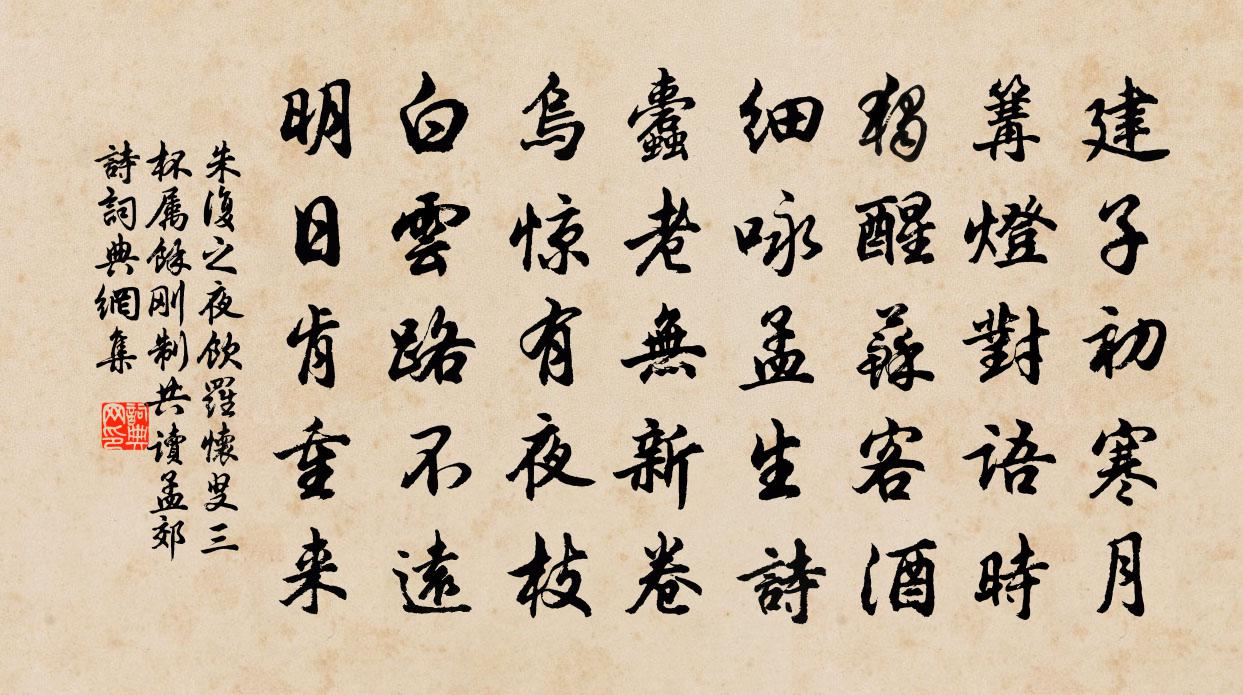 建子初寒月
篝燈對語時
獨醒蘇客酒
細咏孟生詩
蠹老無新卷
烏惊有夜枝
白雲路不遠
明日肯重来
朱復之夜飲羅懷叟三
杯屬餘剛制共讀孟郊
詩詞典網集
詞典网印